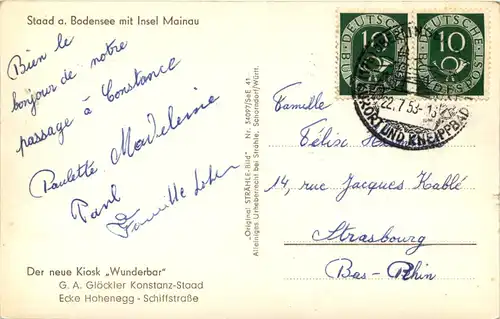 Staad a. Bodensee mit Insel Mainau
Bien le
bonjour de notre
passage à Constance
Paulette Madeleine
Paul
Famille
Der neue Kiosk „Wunderbar"
G. A. Glöckler Konstanz-Staad
Ecke Hohenegg - Schiffstraße
"Original STRÄHLE-Bild" Nr. 34097/SeE 41
Alleiniges Urheberrecht bei Strähle, Schorndorf/Württ.
DEUTSCHE BUNDESPOST
10
DEUTSCHE BUNDESPOST
10
22.7.53
KURORT UND KNEIPPBAD
Famille
Félix
14, rue Jacques Kablé
Strasbourg
Bas-Rhin